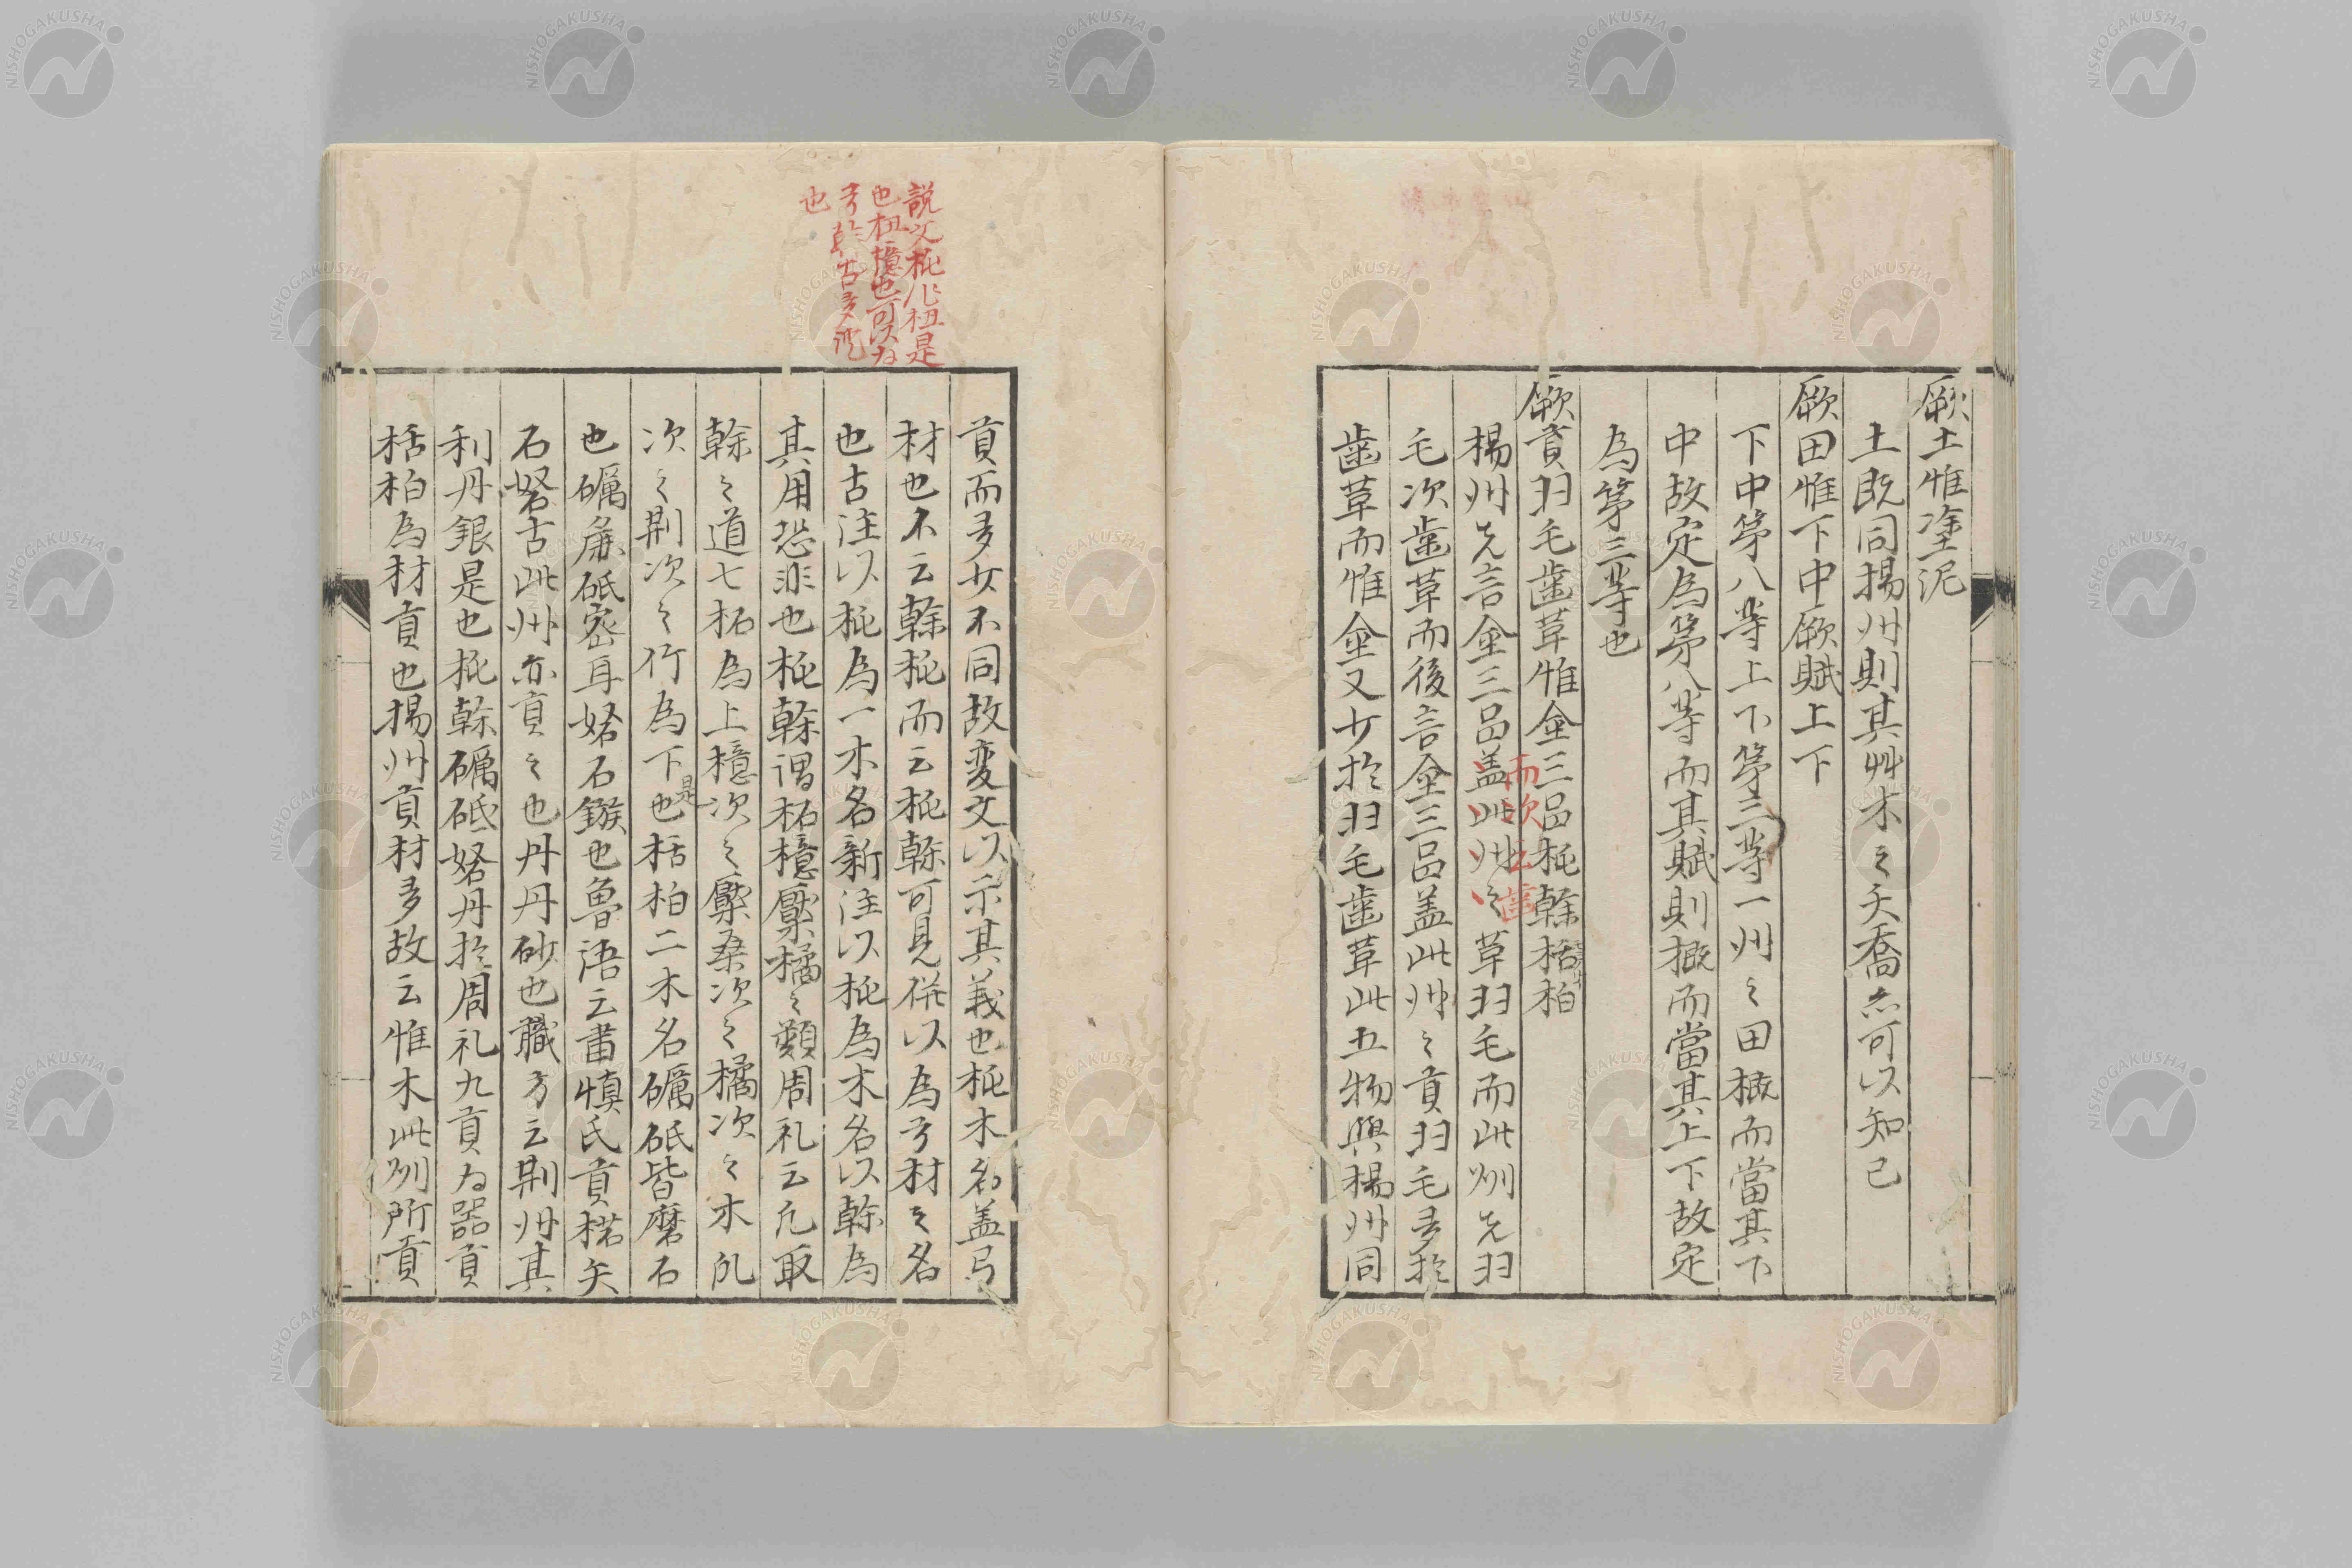 厥土惟塗泥
土既同揚州則其艸木之夭喬亦可以知已
厥田惟下中厥賦上下
下中第八等上下第三等一州之田概而當其下
中故定為第八等而其賦則概而當其上下故定
為第三等也
厥貢羽毛齒革惟金三品杶榦栝柏
楊州先言金三品盖此州之革羽毛而此州先羽
而次云齒
毛次齒革而後言金三品盖此州之貢羽毛多於
齒革而惟金又少於羽毛齒革此五物與楊州同
説文杶作杻是
也杻檍也可以为
弓榦古多
也
貢而多少不同故変文以示其義也杶木名盖弓
材也不云榦杶而云杶榦可見併以為弓材之名
也古注以杶為一木名新注以杶為木名以榦為
其用恐非也杶榦謂柘檍檿橘之類周礼云凡取
榦之道七柘為上檍次之檿桑次之橘次之木瓜
次之荆次之竹為下是也栝柏二木名礪砥皆磨石
也礪麁砥密耳砮石鏃也魯語云肅慎氏貢楛矢
石砮古此州亦貢之也丹丹砂也職方云荆州其
利丹銀是也杶榦礪砥砮丹於周礼九貢为器貢
栝柏為材貢也揚州貢材多故云惟木此州所貢